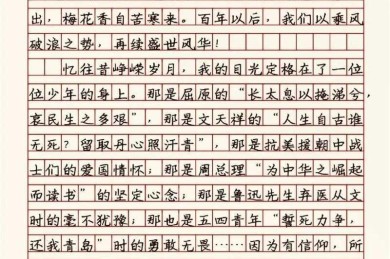 出，梅花香自苦寒来。百年以后，我们以乘风
破浪之势，再续盛世风华！
忆往昔峥嵘岁月，我的目光定格在了一位
位少年的身上。那是屈原的“长太息以掩涕兮，
哀民生之多艰”，那是文天祥的“人生自古谁
无死？留取丹心照汗青”，那是抗美援朝中战
士们的爱国情怀；那是周总理“为中华之崛起
而读书”的坚定心念；那是鲁迅先生弃医从文
时的毫不犹豫；那也是五四青年“誓死力争，
还我青岛”时的勇敢无畏……因为有信仰，所